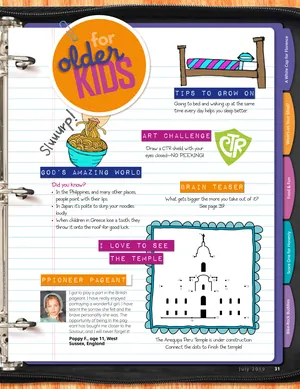 for
older
KIDS
TIPS TO GROW ON
Going to bed and waking up at the same
time every day helps you sleep better
Sluuurp!
ART CHALLENGE
Draw a CTR shield with your
eyes closed—NO PEEKING!
CTR
GOD'S AMAZING WORLD
Did you know?
• In the Philippines, and many other places,
people point with their lips.
• In Japan, it's polite to slurp your noodles
loudly.
• When children in Greece lose a tooth, they
throw it onto the roof for good luck.
BRAIN TEASER
What gets bigger the more you take out of it?
See page 39!
I LOVE TO SEE
THE TEMPLE
PIONEER PAGEANT
I got to play a part in the British
pageant. I have really enjoyed
portraying a wonderful girl. I have
learnt the sorrow she felt and the
brave personality she was. The
opportunity of being in the pag-
eant has brought me closer to the
Saviour, and I will never forget it!
Poppy F., age 11, West
Sussex, England
The Arequipa Peru Temple is under construction.
Connect the dots to finish the temple!
July 2019 31